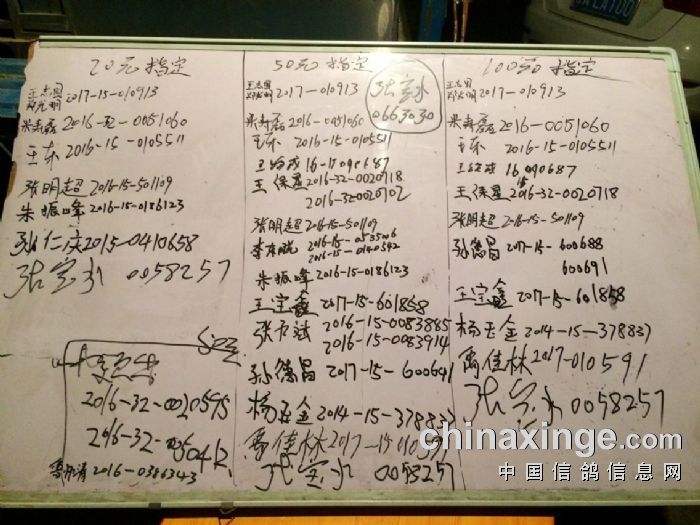 20元指定
王志国
郑光明 2017-15-010913
朱寿磊 2016-32-0051060
王东 2016-15-0105511
张明超 2016-15-501109
朱振峰 2016-15-0186123
孙仁庆 2015-0410658
张宝水 0058257
50元
2016-32-0020595
2016-32-0050412
2016-0386343
50元指定
王志国
郑光明 2017-010913
张宝水
0663030
朱寿磊 2016-0051060
王东 2016-15-0105511
16-15-090687
王保星 2016-32-0020718
2016-32-0020702
张明超 2016-15-501109
2016-15-0535006
2016-15-0140542
朱振峰 2016-15-0186123
王宝鑫 2017-15-601858
2016-15-0083885
2016-15-0083914
孙德昌 2017-15-600691
杨玉金 2014-15-378837
禹佳林 2017-15-010591
张宝水 0058257
100元指定
王志国
郑光明 2017-010913
朱寿磊 2016-0051060
王东 2016-15-0105511
16-15-090687
王保星 2016-32-0020718
张明超 2016-15-501109
孙德昌 2017-15-600688
600691
王宝鑫 2017-15-601858
杨玉金 2014-15-378837
禹佳林 2017-010591
张宝水 0058257
chinaxinge.com
中国信鸽信息网